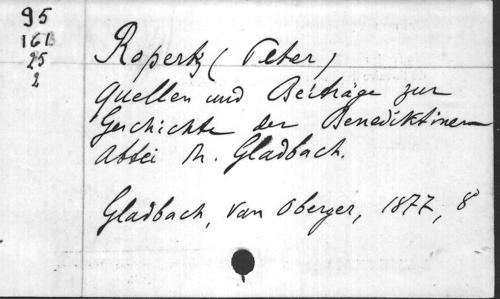 95
161B
25
2
Ropertz (Peter)
Quellen und Beiträge zur
Geschichte der Benediktiner-
Abtei M. Gladbach.
Gladbach, Van Oberger, 1877, 8°